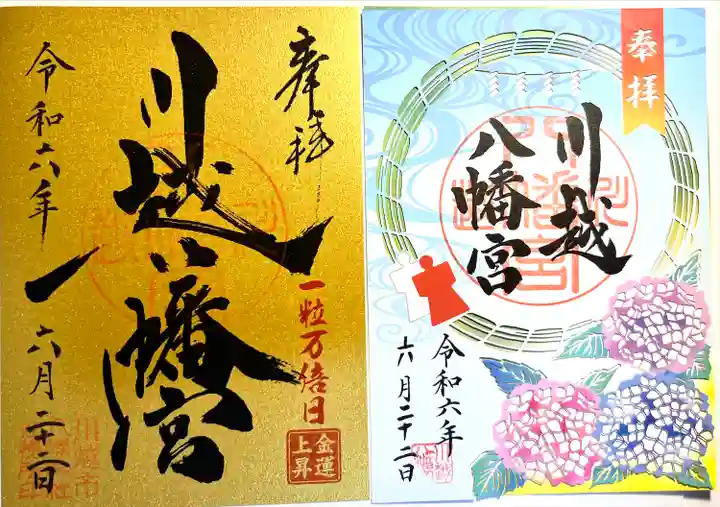 奉拝
川越八幡宮
令和六年
六月二十二日
一粒万倍日
金運
上昇
奉拝
川越
八幡宮
令和六年
六月二十二日